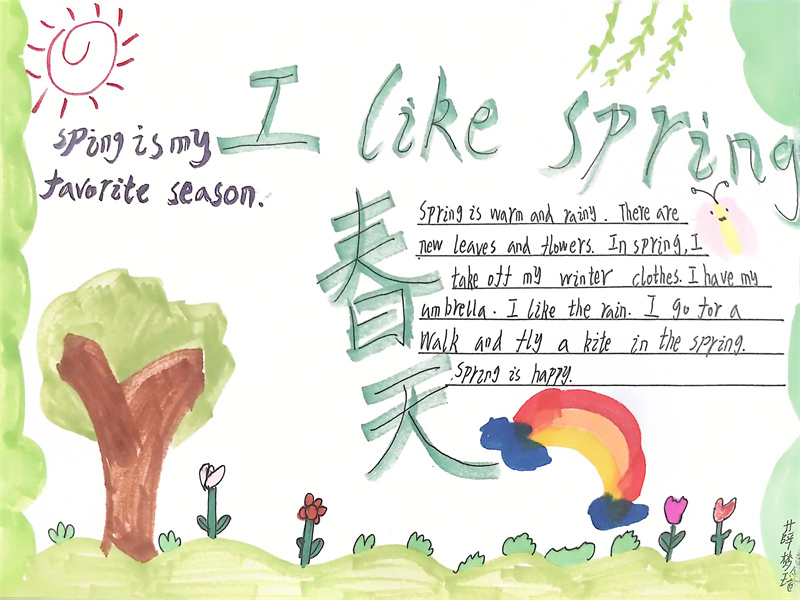 I like spring
sping is my
favorite season.
春天
Spring is warm and rainy. There are
new leaves and flowers. In spring, I
take off my winter clothes. I have my
umbrella. I like the rain. I go for a
walk and fly a kite in the spring.
Spring is happy.